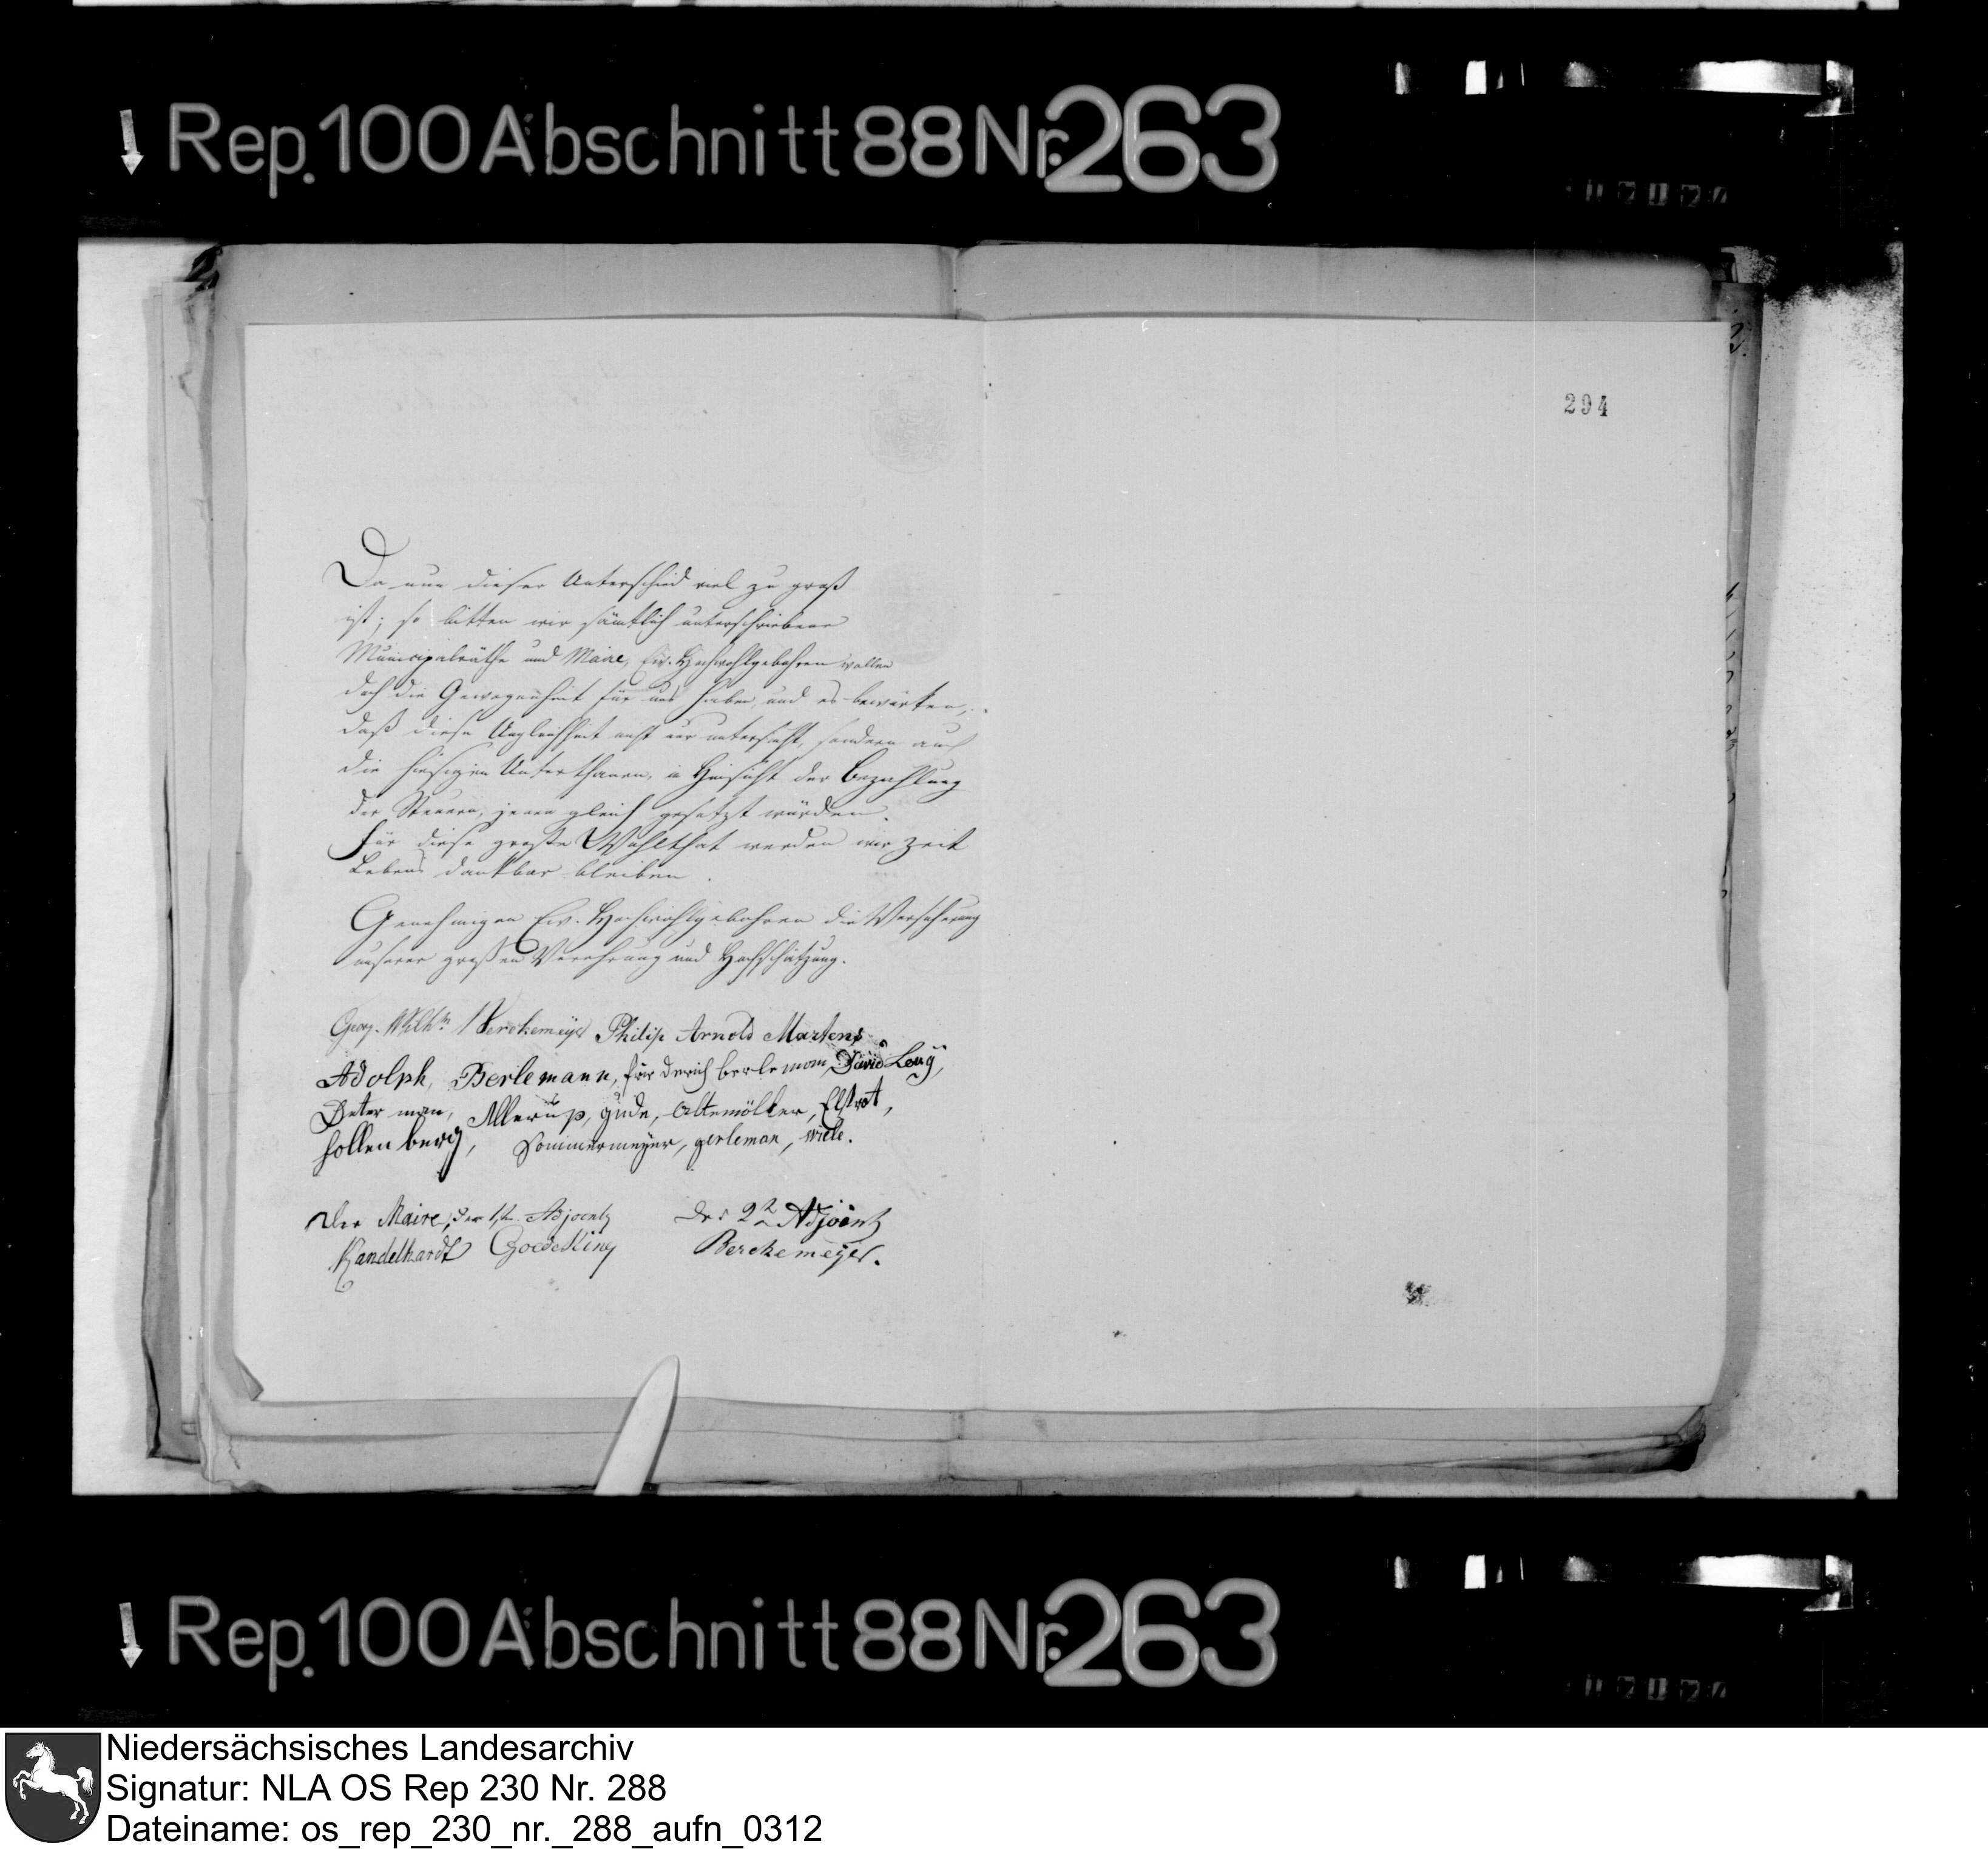 Rep. 100 Abschnitt 88 Nr. 263
294
Da nun dieser Unterschied viel zu groß
ist; so bitten wir sämtlich unterschriebene
Municipalräthe und Maire, Ew. Hochwohlgebohren wollen
doch die Gewogenheit für uns haben, und es bewürken,
daß diese Ungleichheit nicht nur untersucht, sondern auch
die hiesigen Unterthanen, in Hinsicht der Bezahlung
der Steuern, jenen gleich gesetzt würden.
Für diese große Wohlthat werden wir zeit
Lebens dankbar bleiben.
Genehmigen Ew. Hochwohlgebohren die Versicherung
unserer großen Verehrung und Hochschätzung.
Georg. Wilhm Berckemeyer Philip Arnold Martens
Adolph, Berlemann, berleman, David
Deter man, Allerup, gude, Altemöller, Elstrot,
hollen berg, Sommermeyer, gerleman, wiele.
Der Maire, der 1te Adjoint Der 2te Adjoint
Kandelhardt Goedecking Berckemeyer.
Rep. 100 Abschnitt 88 Nr. 263
Niedersächsisches Landesarchiv
Signatur: NLA OS Rep 230 Nr. 288
Dateiname: os_rep_230_nr._288_aufn_0312